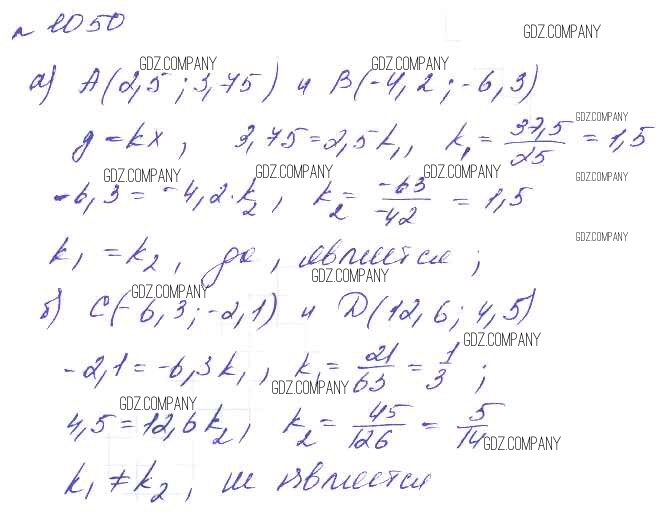 № 1050
GDZ.COMPANY
GDZ.COMPANY GDZ.COMPANY
а) A(2,5 ; 3,75) и B(-4,2 ; -6,3)
GDZ.COMPANY
y = kx , 3,75 = 2,5k₁ , k₁ = 37,5/25 = 1,5
GDZ.COMPANY GDZ.COMPANY GDZ.COMPANY GDZ.COMPANY
-6,3 = -4,2·k₂ , k₂ = -63/-42 = 1,5
GDZ.COMPANY
k₁ = k₂ , да , является ;
GDZ.COMPANY
GDZ.COMPANY
б) C(-6,3 ; -2,1) и D(12,6 ; 4,5)
GDZ.COMPANY
-2,1 = -6,3k₁ , k₁ = 21/63 = 1/3 ;
GDZ.COMPANY
GDZ.COMPANY
4,5 = 12,6k₂ , k₂ = 45/126 = 5/14
GDZ.COMPANY
k₁ ≠ k₂ , не является